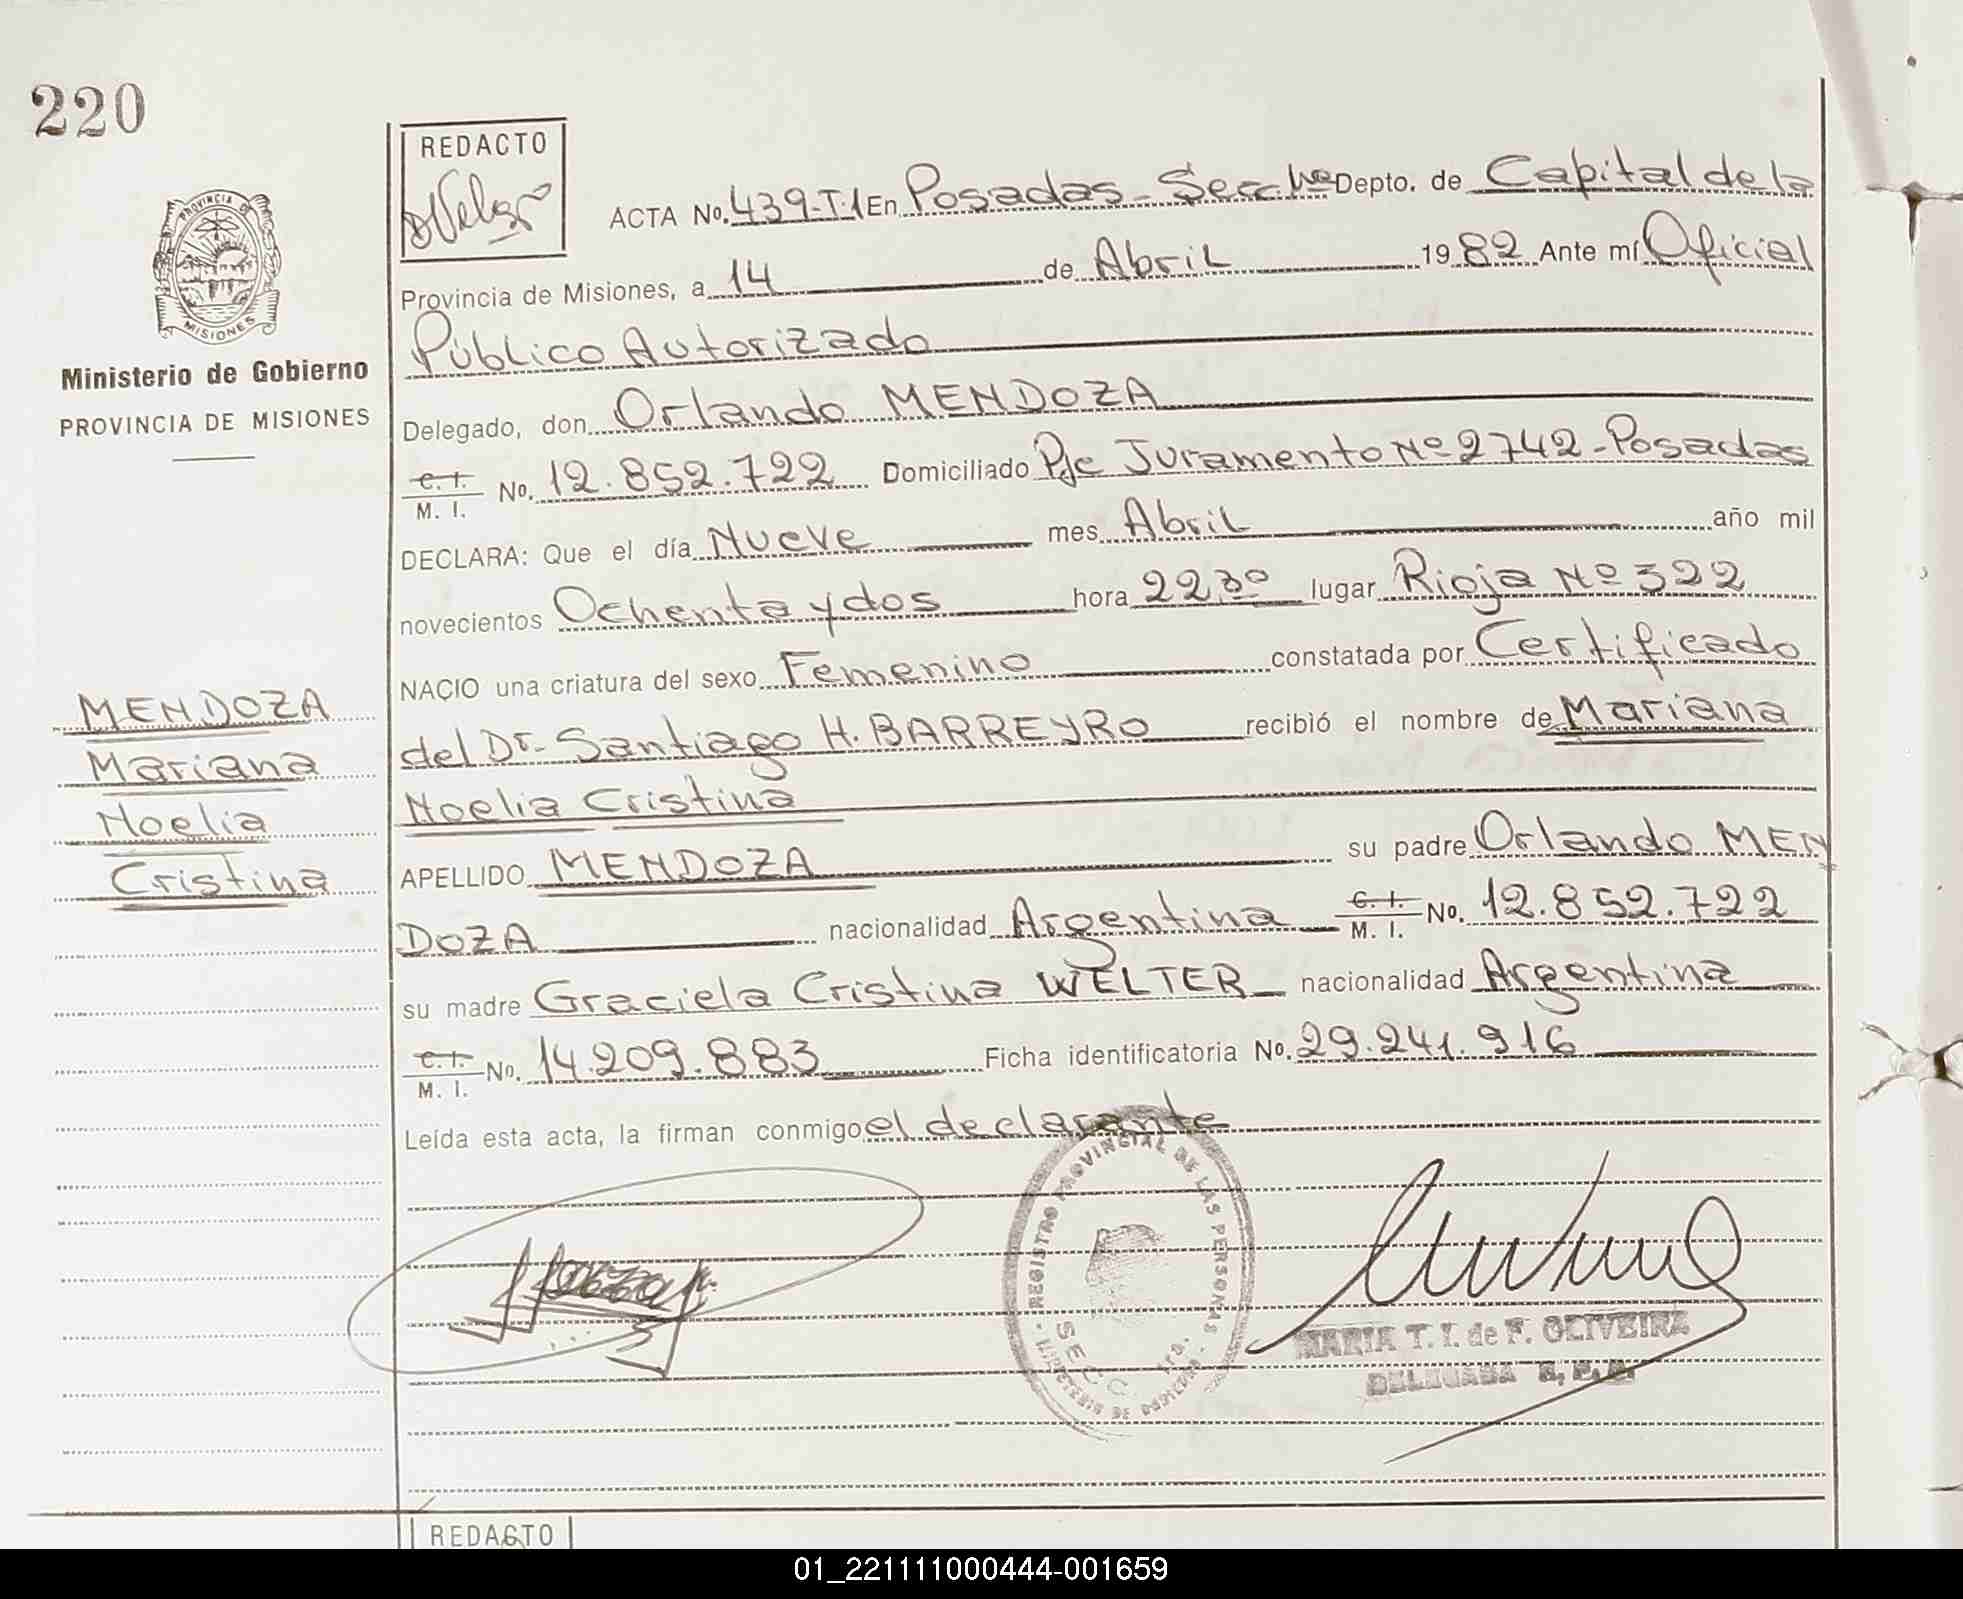 220
REDACTO
PROVINCIA DE
MISIONES
Ministerio de Gobierno
PROVINCIA DE MISIONES
ACTA No. 439-T-1 En Posadas - Secc 1ra Depto. de Capital de la
Provincia de Misiones, a 14 de Abril 1982 Ante mí Oficial
Público Autorizado
Delegado, don Orlando MENDOZA
C. I.
M. I. No. 12.852.722 Domiciliado Pje Juramento Nº 2742 - Posadas
DECLARA: Que el día Nueve mes Abril año mil
novecientos Ochenta y dos hora 22 30 lugar Rioja Nº 322
NACIO una criatura del sexo Femenino constatada por Certificado
del Dr. Santiago H. BARREYRO recibió el nombre de Mariana
Noelia Cristina
APELLIDO MENDOZA su padre Orlando MEN
DOZA nacionalidad Argentina C. I.
M. I. No. 12.852.722
su madre Graciela Cristina WELTER nacionalidad Argentina
C. I.
M. I. No. 14.209.883 Ficha identificatoria No. 29.241.916
Leída esta acta, la firman conmigo el declarante
MENDOZA
Mariana
Noelia
Cristina
REGISTRO PROVINCIAL DE LAS PERSONAS
SECC. 1ra.
MARIA T. I. de F. OLIVEIRA
DELEGADA
REDACTO
01_221111000444-001659